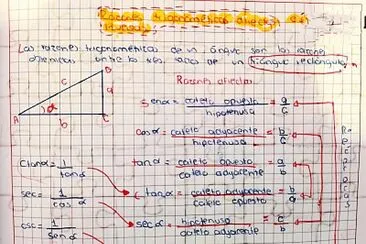 Razones trigonometricas directas de un
triangulo.
Las razones trigonometricas de un angulo son las razones
obtenidas entre los tres lados de un triangulo rectangulo.
Razones directas.
B
c
a
α
A
b
C
sen α = cateto opuesto / hipotenusa = a/c
cos α = cateto adyacente / hipotenusa = b/c
tan α = cateto opuesto / cateto adyacente = a/b
ctan α = 1 / tan α
ctan α = cateto adyacente / cateto opuesto = b/a
sec = 1 / cos α
sec α = hipotenusa / cateto adyacente = c/b
csc = 1 / sen α